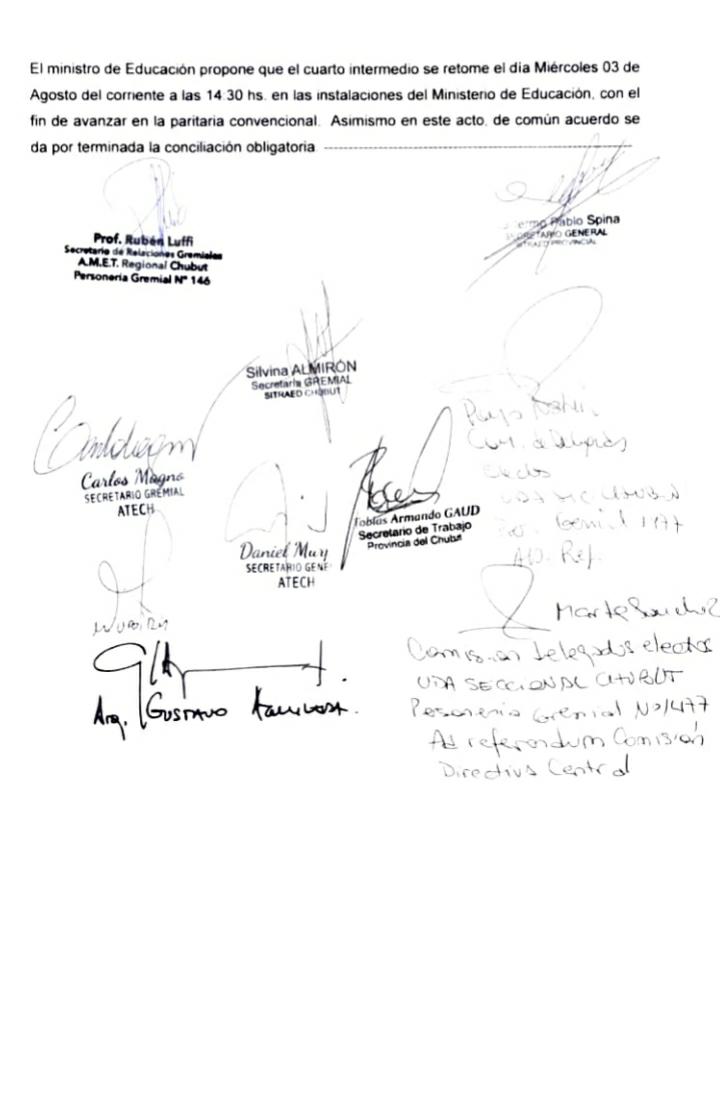 El ministro de Educación propone que el cuarto intermedio se retome el día Miércoles 03 de
Agosto del corriente a las 14:30 hs. en las instalaciones del Ministerio de Educación, con el
fin de avanzar en la paritaria convencional. Asimismo en este acto, de común acuerdo se
da por terminada la conciliación obligatoria
Prof. Rubén Luffi
Secretario de Relaciones Gremiales
A.M.E.T. Regional Chubut
Personería Gremial Nº 146
Pablo Spina
SECRETARIO GENERAL
SITRAED PROVINCIAL
Silvina ALMIRÓN
Secretaria GREMIAL
SITRAED CHUBUT
Carlos Magno
SECRETARIO GREMIAL
ATECH
Daniel Mury
SECRETARIO GENE
ATECH
Tobías Armando GAUD
Secretario de Trabajo
Provincia del Chubut
Com. de Delegados
electos
Ad. Ref.
Arq. Gustavo
Marta Sanchez
Comision delegados electos
UDA SECCIONAL CHUBUT
Pesoneria Gremial Nº 1477
Ad referendum Comisión
Directiva Central